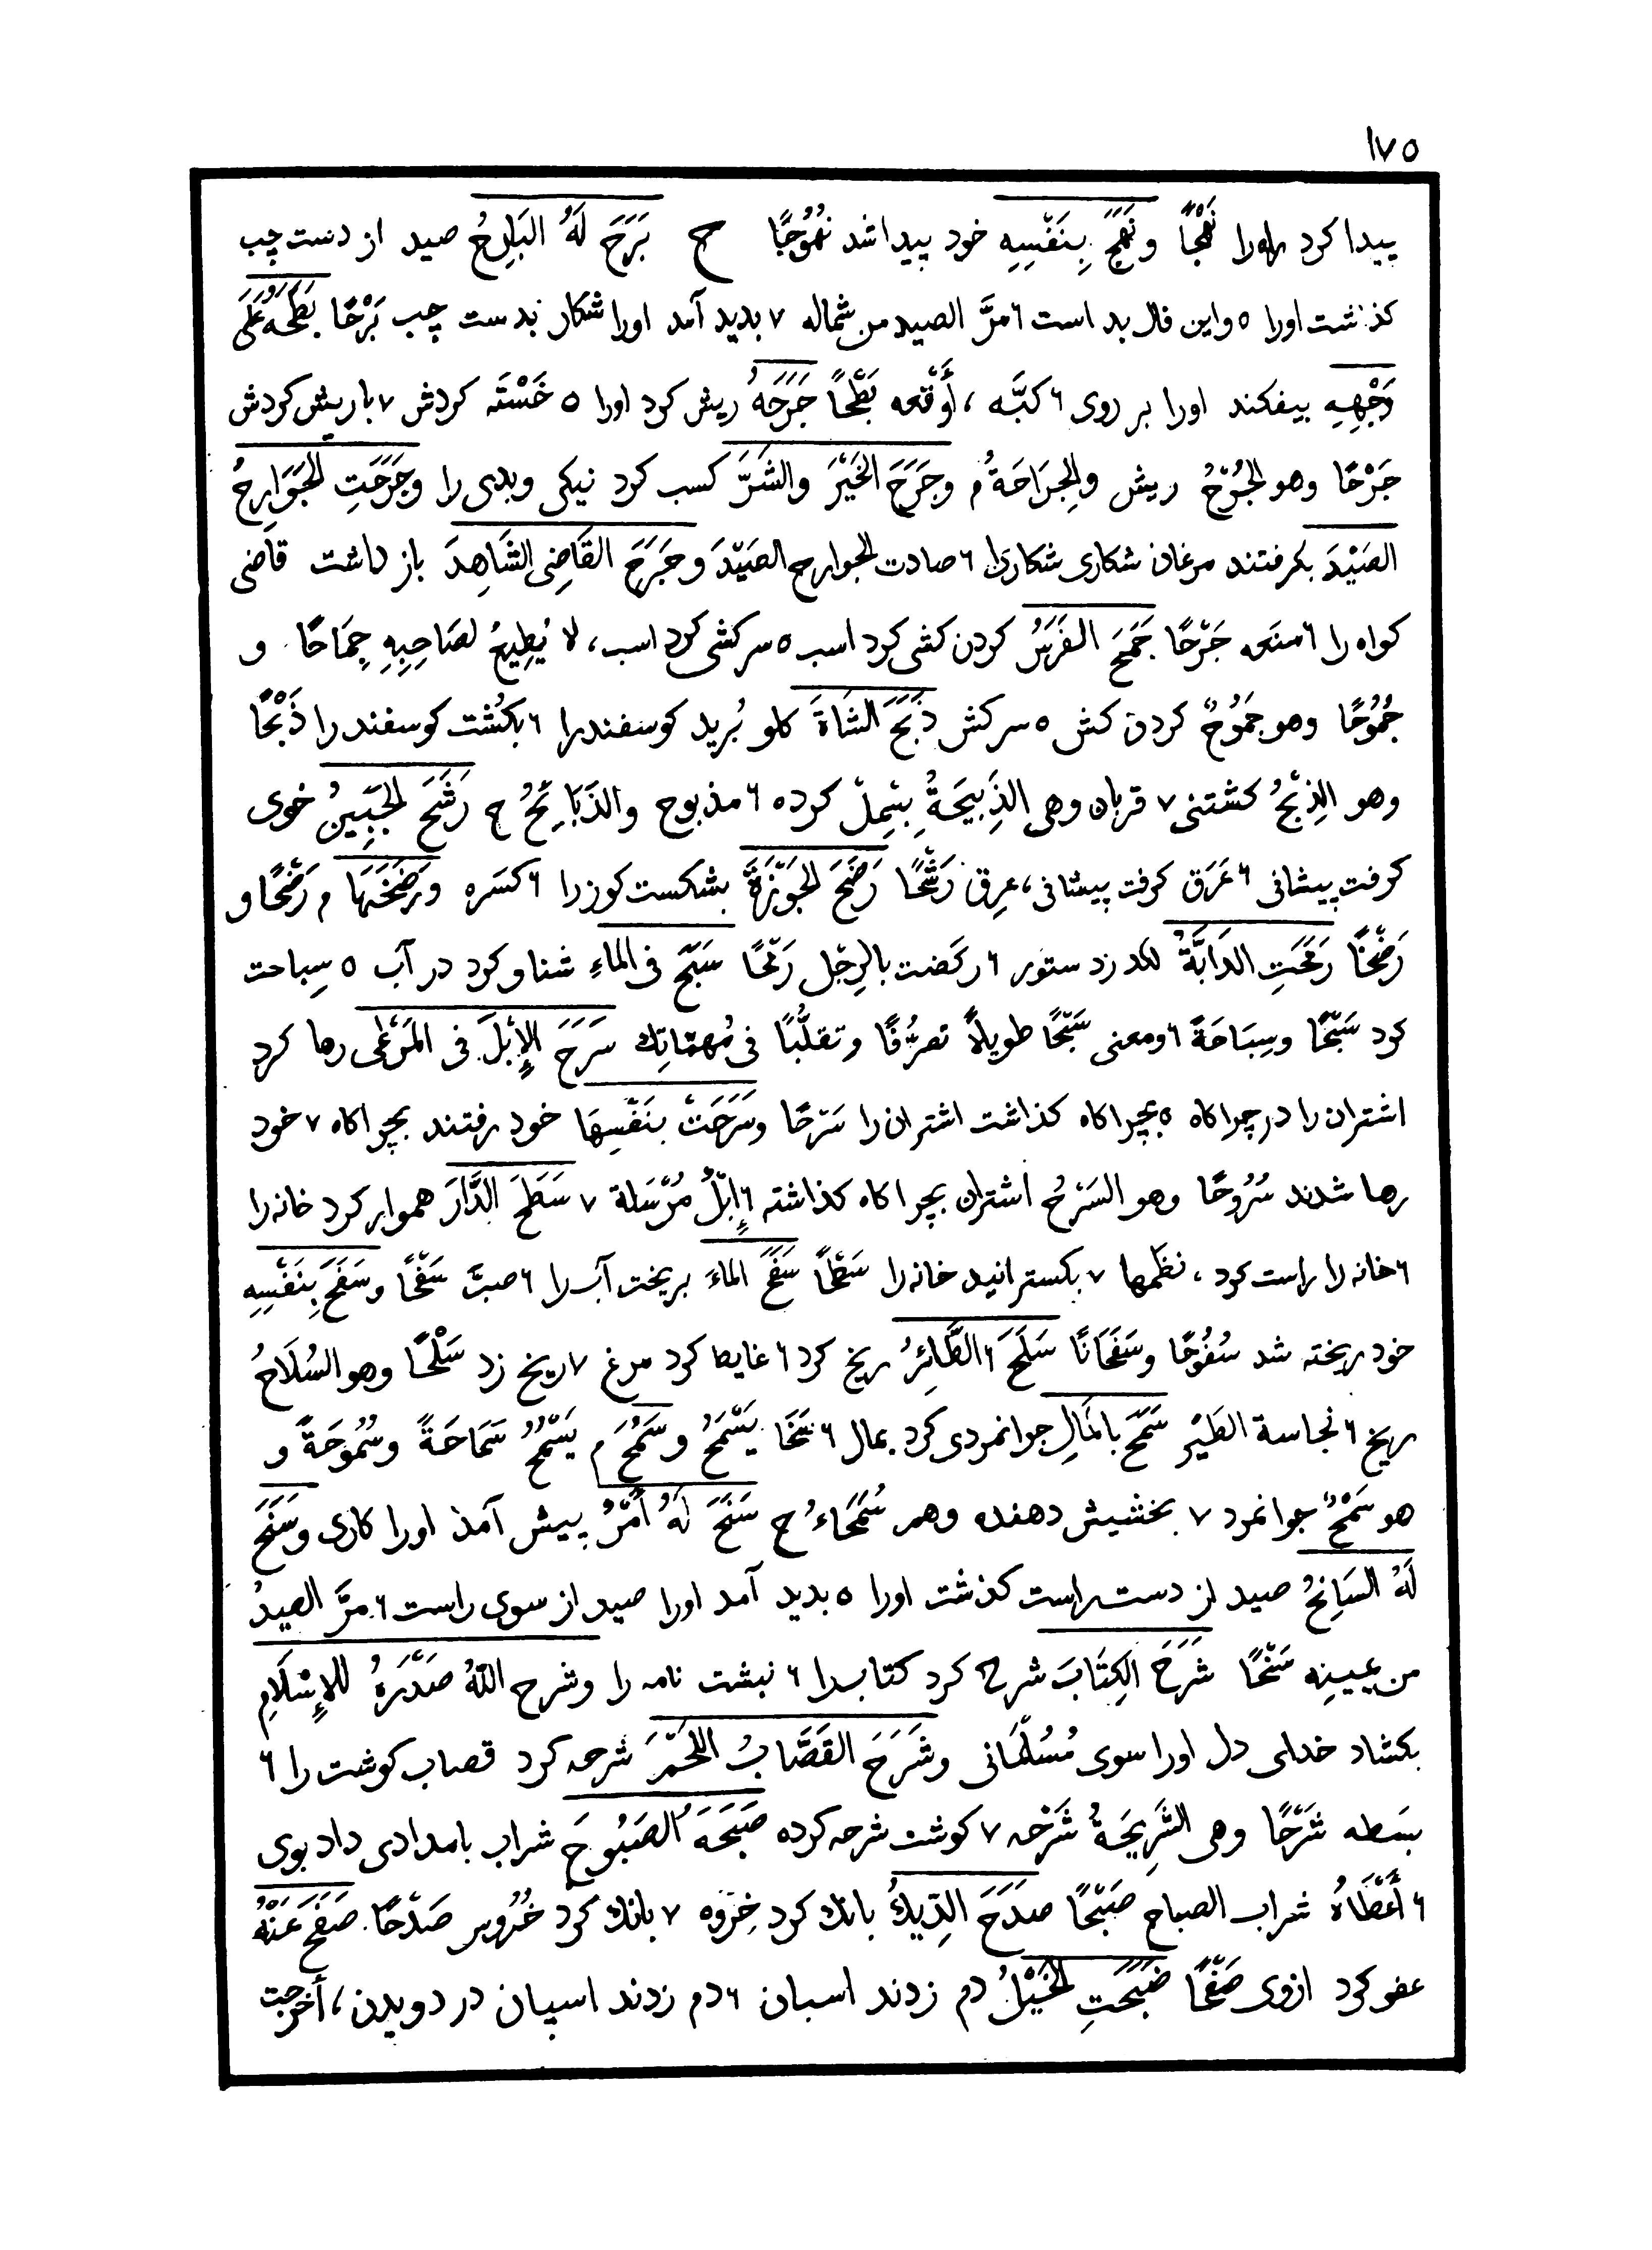 ١٧٥
پیدا کرد راه را نَهْجًا ونَهَجَ بِنَفْسِهِ خود پیدا شد نُهُوْجًا ح بَرَحَ لَهُ البَارِحُ صید از دست چپ
کذشت اورا ٥ واین فال بد است ٦ مرَّ الصید من شماله ٧ بدید آمد اورا شکار بدست چپ بَرْحًا بَطَحَهُ عَلَی
وَجْهِهِ بیفکند اورا بر روی ٦ کبَّه ، أَوْقعه بَطْحًا جَرَحَهُ ریش کرد اورا ٥ خَسْتَه کردش ٧ با ریش کردش
جَرْحًا وهو الجُرْحُ ریش والجِرَاحَةُ م وجَرَحَ الخَیْرَ والشَرَّ کسب کرد نیکی وبدی را وجَرَحَتِ الجَوَارِحُ
الصَیْدَ بکرفتند مرغان شکاری شکاریرا ٦ صادت الجوارح الصَیْدَ وجَرَحَ القَاضِی الشَاهِدَ باز داشت قاضی
کواه را ٦ منعه جَرْحًا جَمَحَ الفَرَسُ کردن کشی کرد اسب ٥ سرکشی کرد اسب ، لا یُطِیعُ لصَاحِبِهِ جِمَاحًا و
جُمُوْحًا وهو جَمُوْحٌ کردن کش ٥ سرکش ذَبَحَ الشَاةَ کلو بُرید کوسفند را ٦ بکُشت کوسفند را ذَبْحًا
وهو الذِبْحُ کشتنی ٧ قربان وهی الذَبِیحَةُ بِسْمِلْ کرده ٦ مذبوح والذَبَائِحُ ج رَشَحَ الجَبِینُ خوی
کرفت پیشانی ٦ عَرَق کرفت پیشانی ، عِرِق رَشْحًا رَضَحَ الجَوْزَةَ بشکست کوز را ٦ کسَره ورَضَخَهَا م رَضْحًا و
رَضْخًا رَمَحَتِ الدَابَّةُ لکد زد ستور ٦ رکَضت بالرِجْل رَمْحًا سَبَحَ فی الماءِ شناو کرد در آب ٥ سِباحت
کرد سَبْحًا وسِبَاحَةً ٦ ومعنی سَبْحًا طویلاً تصرُّفًا وتقلُّبًا فی مُهمّاتِك سَرَحَ الإِبْلَ فی المَرْعَی رها کرد
اشتران را در چراکاه ٥ بچراکاه کذاشت اشتران را سَرْحًا وسَرَحَتْ بِنَفْسِهَا خود رفتند بچراکاه ٧ خود
رها شدند سُرُوحًا وهو السَرْحُ اشتران بچراکاه کذاشته ٦ إِبْلٌ مُرْسَلة ٧ سَطَحَ الدَّارَ هموار کرد خانه را
٦ خانه را راست کرد ، نظَمها ٧ بکسترانید خانه را سَطْحًا سَفَحَ الماءَ بریخت آب را ٦ صبَّ سَفْحًا وسَفَحَ بِنَفْسِهِ
خود ریخته شد سُفُوحًا وسَفَحَانًا سَلَحَ ٦ الطَّائِرُ ریخ کرد ٦ غایط کرد مرغ ٧ ریخ زد سَلْحًا وهو السُلَاحُ
ریخ ٦ نجاسة الطَیْر سَمَحَ بالمَالِ جوانمردی کرد بمال ٦ سَخَا یَسْمَحُ وسَمُحَ م یَسْمُحُ سَمَاحَةً وسُمُوحَةً و
هو سَمْحٌ جوانمرد ٧ بخشیش دهنده وهم سُمَحَاءُ ج سَنَحَ لَهُ أَمْرٌ پیش آمد اورا کاری وسَنَحَ
لَهُ السَانِحُ صید از دست راست کذشت اورا ٥ بدید آمد اورا صید از سوی راست ٦ مرَّ الصیدُ
من یمینِه سَنْحًا شَرَحَ الکِتَابَ شرح کرد کتاب را ٦ نبشت نامه را وشرح اللّهُ صَدْرَهُ للإِسْلَامِ
بکشاد خدای دل اورا سوی مُسُلْمَانی وشَرَحَ القَصَّابُ اللَحْمَ شرحه کرد قصاب کوشت را ٦
بسَطه شَرْحًا وهی الشَرِیحَةُ شَرْحه ٧ کوشت شرحه کرده صَبَحَهُ الصَبُوحَ شراب بامدادی داد بوی
٦ أَعْطَاهُ شراب الصباح صَبْحًا صَدَحَ الدِّیكُ بانك کرد خِرْوِه ٧ بانك کرد خُرُوس صَدْحًا صَفَحَ عَنْهُ
عفو کرد ازوی صَفْحًا ضَبَحَتِ الخَیْلُ دم زدند اسبان ٦ دم زدند اسپان در دویدن ، أخرجت